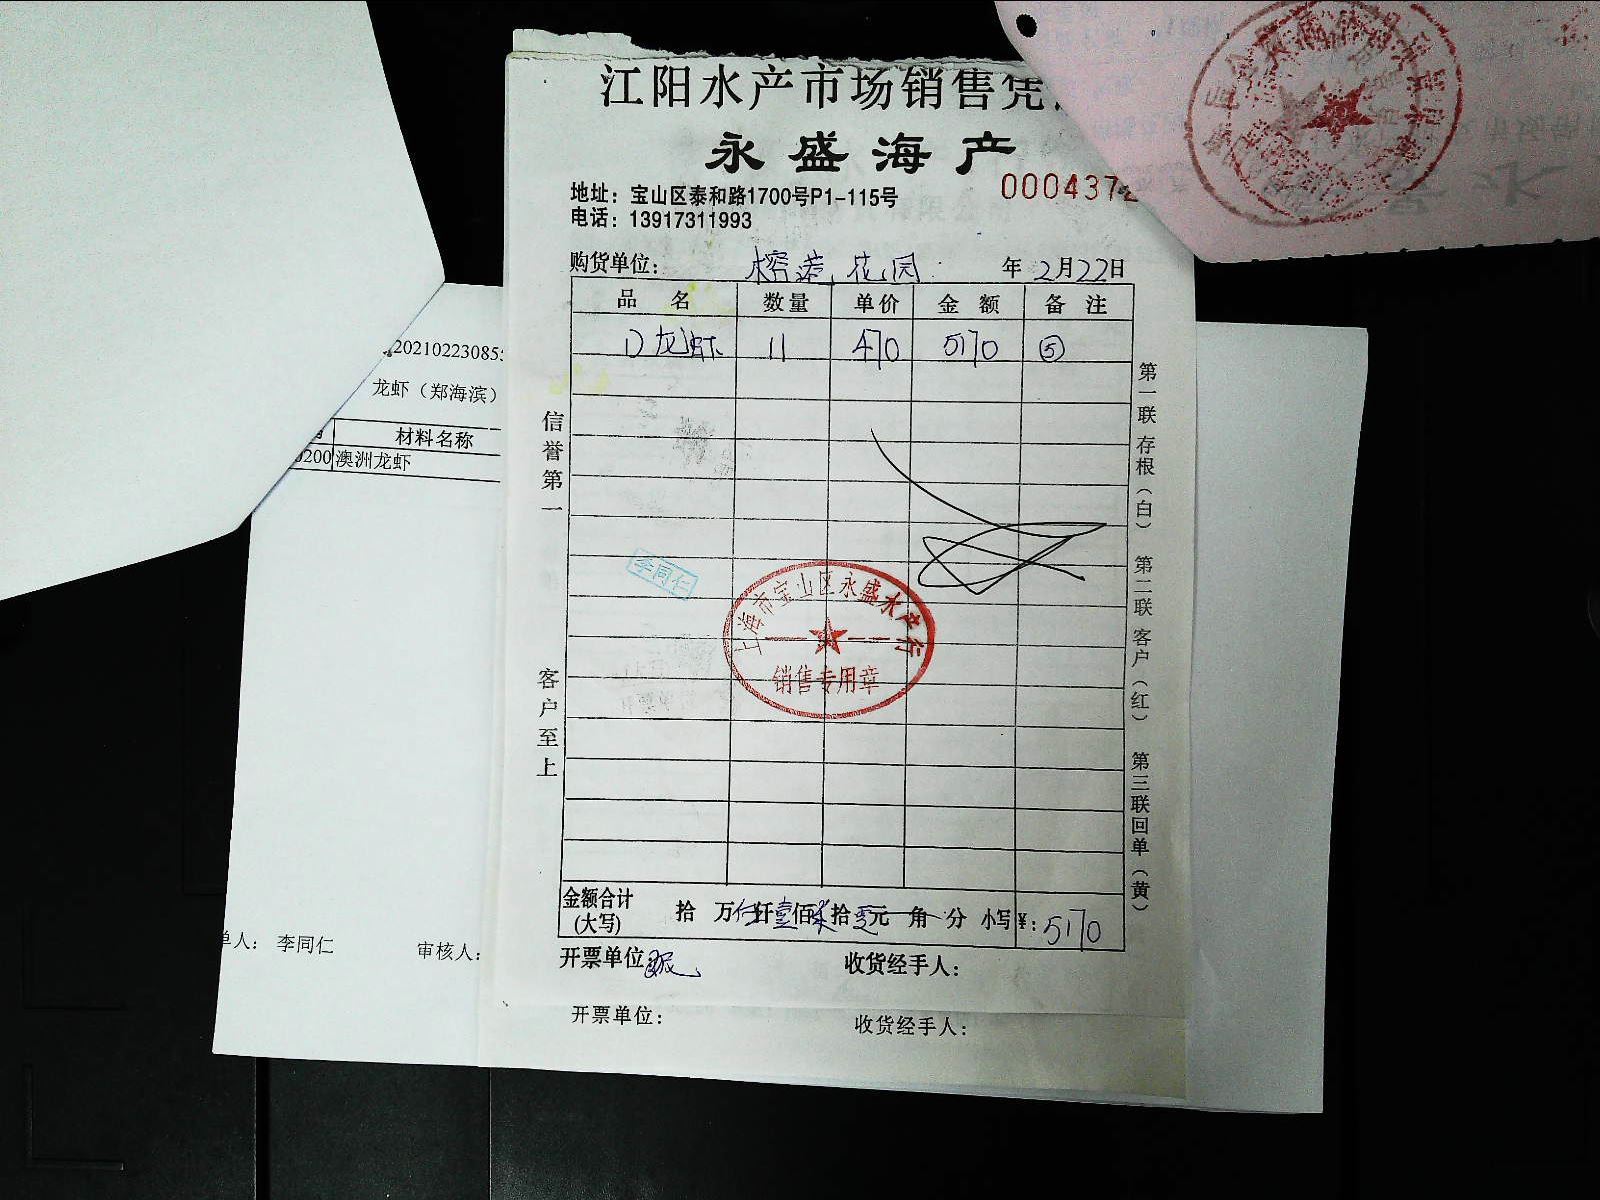 江阳水产市场销售凭
永盛海产
地址：宝山区泰和路1700号P1-115号
电话：13917311993
0004372
购货单位： 花园 年 2月22日
品 名 数量 单价 金 额 备 注
龙虾 11 470 5170 ⑤
信誉第一
客户至上
第一联 存根（白） 第二联 客户（红） 第三联 回单（黄）
李同仁
上海市宝山区永盛水产行
销售专用章
金额合计
(大写) 拾 万伍仟壹佰柒拾零元 角 分 小写¥：5170
开票单位： 收货经手人：
开票单位： 收货经手人：
202102230855
龙虾（郑海滨）
材料名称
0200 澳洲龙虾
单人： 李同仁 审核人：